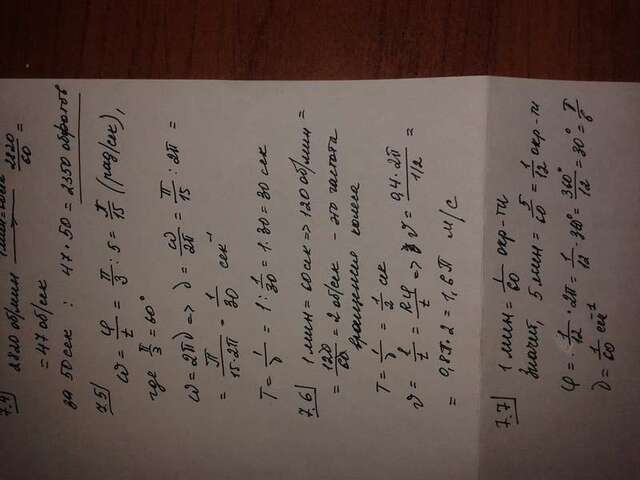 7.4) 2820 об/мин → 2820/60 =
= 47 об/сек
за 50 сек : 47 · 50 = 2350 оборотов
7.5) ω = φ/t = π/3 : 5 = π/15 (рад/сек),
где π/3 = 60°
ω = 2πν => ν = ω/2π = π/15 : 2π =
= π/15·2π = 1/30 сек⁻¹
T = 1/ν = 1 : 1/30 = 1·30 = 30 сек
7.6) 1 мин = 60 сек => 120 об/мин =
= 120/60 = 2 об/сек - это частота
вращения колеса
T = 1/ν = 1/2 сек
v = l/t = Rφ/t => v = 0,4·2π / 1/2 =
= 0,8π·2 = 1,6π м/с
7.7) 1 мин = 1/60 окр-ти
Значит, 5 мин = 5/60 = 1/12 окр-ти
φ = 1/12 · 2π = 1/12 · 30° = 360°/12 = 30° = π/6
ν = 1/60 сек⁻¹